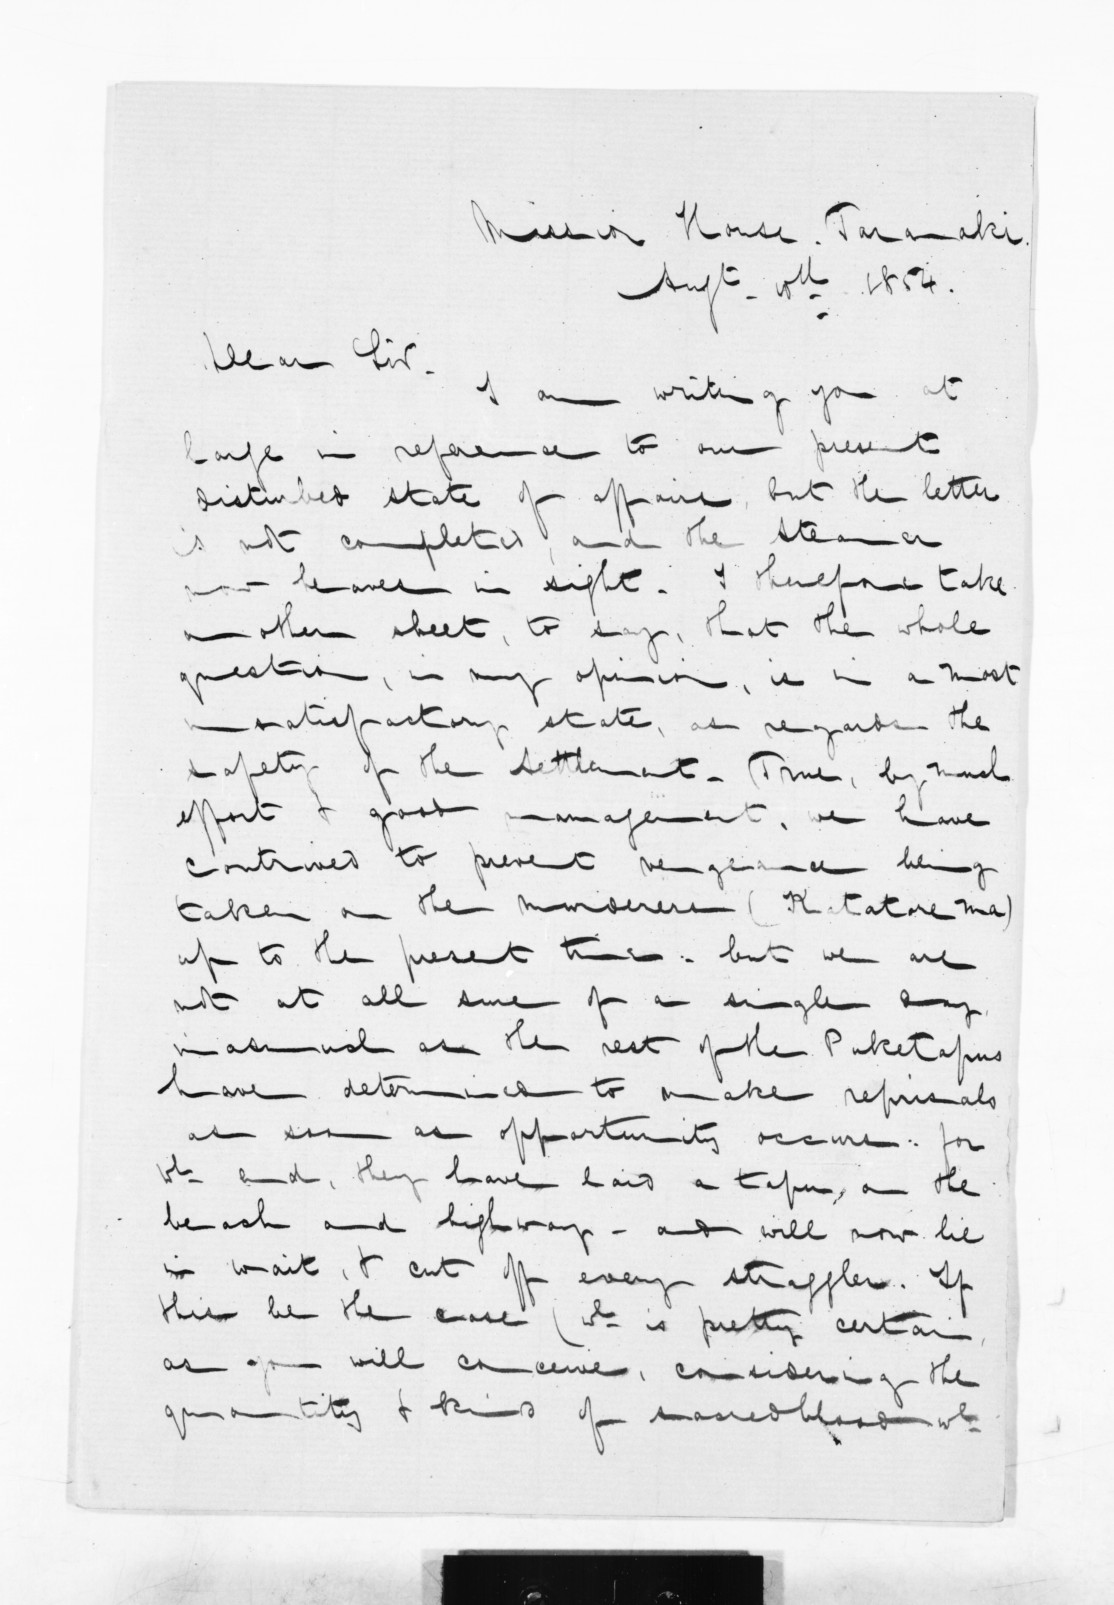 Mission House. Taranaki.
Augt. 10th 1854.
Dear Sir.
I am writing you at
large in reference to our present
disturbed state of affairs, but the letter
is not completed, and the steamer
now heaves in sight. I therefore take
another sheet, to say, that the whole
question, in my opinion, is in a most
unsatisfactory state, as regards the
safety of the Settlement. True, by much
effort & good management, we have
contrived to prevent vengeance being
taken on the murderers (Katatore ma)
up to the present time. but we are
not at all sure of a single day,
inasmuch as the rest of the Puketapus
have determined to make reprisals
as soon as opportunity occurs. for
wh end, they have laid a tapu, on the
beach and highway - and will now lie
in wait, & cut off every straggler. If
this be the case (wh is pretty certain,
as you will conceive, considering the
quantity & kind of sacred blood wh